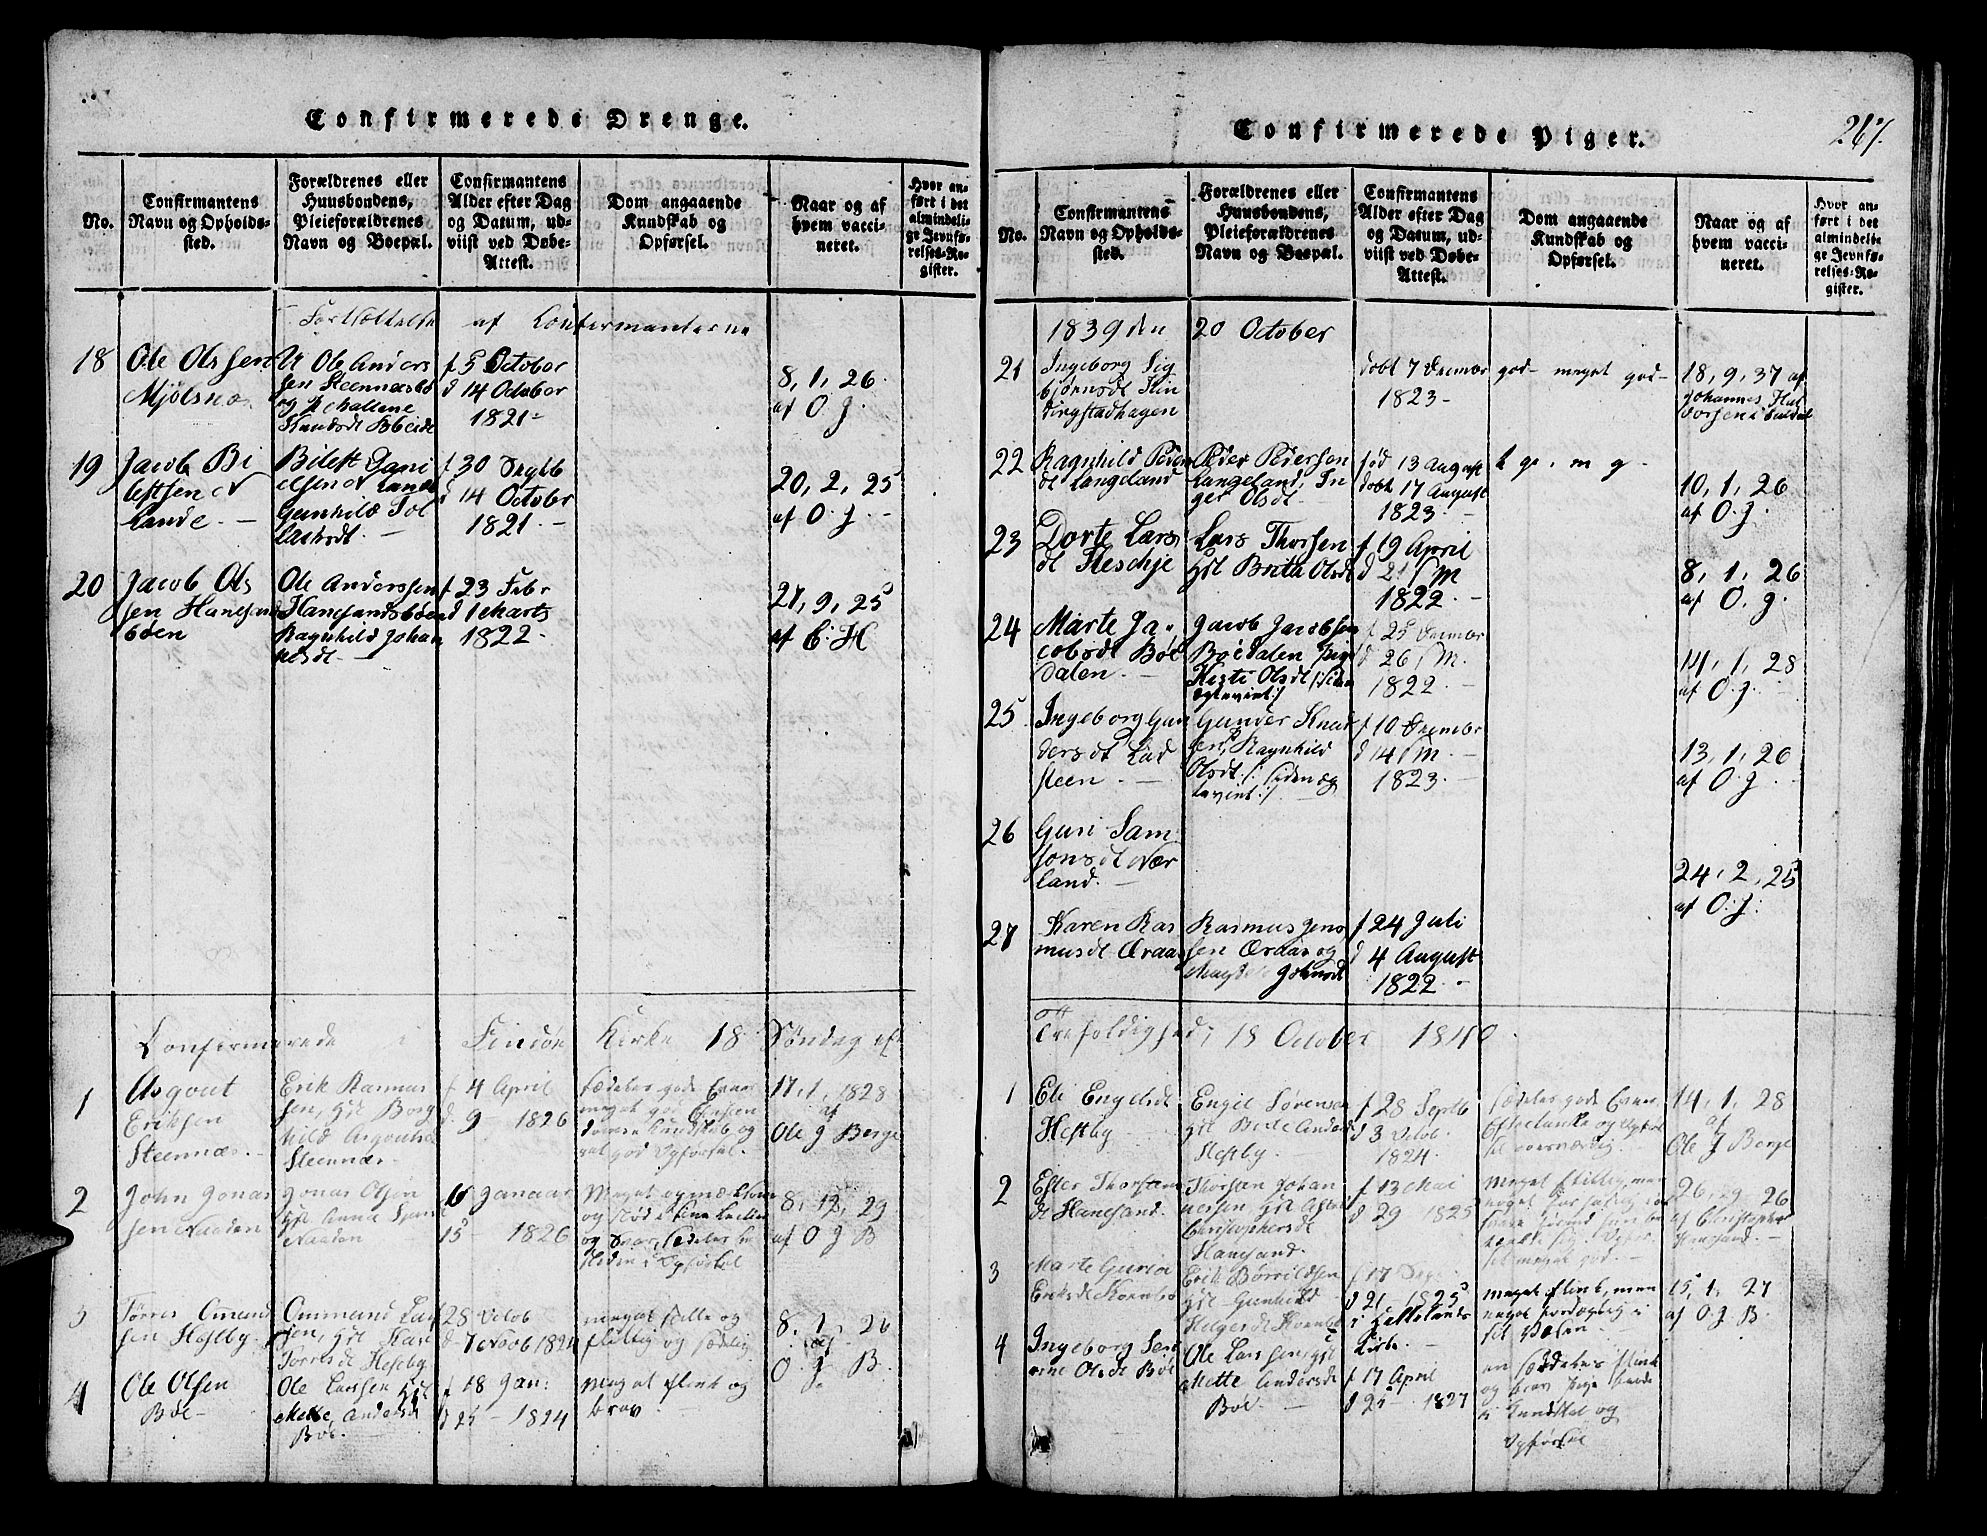 Confirmerede Drenge.
No.
Confirmantens
Navn og Opholds-
sted.
Forældrenes eller
Huusbondens,
Pleieforældrenes
Navn og Boepæl.
Confirmantens
Alder efter Dag
og Datum, ud-
viist ved Døbe-
Attest.
Dom angaaende
Kundskab og
Opførsel.
Naar og af
hvem vacci-
neret.
Hvor an-
ført i det
almindeli-
ge Jevnfø-
relses-Re-
gister.
Fortsættelse af Confirmanterne
18
Ole Olssen
Mjølsnæs
U Ole Anders
sen Steennæsbø
og P Mallene
Knudsdt Bbeide
f 5 October
d 14 October
1821-
8, 1, 26
af O. J.
19
Jacob Bi
lestsen N
lande. -
Bilest Dani
elsen N lande
Gunhild Tol
laksdt. -
f 30 Septb
d 14 October
1821. -
20, 2, 25
af O. J. -
20
Jacob Ols
sen Hanesand
bøen
Ole Anderssen
Hanesandsbøen
Ragnhild Johan
nesdt. -
f 23 Febr
d 1 Marts
1822. -
27, 9, 25
af C. H
Confirmerede i Findøe Kirke 18 Søndag eft
1
Asgout
Eriksen
Steennæs. -
Erik Rasmus
sen, Hst Borg
hild Asgoutsd
Steennæs.
f 4 April
d 9 - 1826
særdeles gode Evner
meget god Christen
doms Kundskab og
god Opførsel.
17, 1, 1828
af
Ole J Berge
2
John Jonas
sen Naaden
Jonas Olsen
Hst Anne
Naaden
6 Januar
15 - 1826
Meget opmærksom
og
og Svar, særdeles be
skeden i Opførsel
8, 12, 29
af O J B
3
Tørres Omund
sen Hesby.
Ommund Lar
sen, Hst Kari
Torresdt Hesby
28 Octob
d 7 Novb 1824
meget stille og
flittig og sædelig
8, 1, 26
af
O J B.
4
Ole Olsen
Bøe -
Ole Larssen Hst
Mette Andersdt
Bøe. -
f 18 Jan:
d 25 - 1824
Meget flink og
brav -
Confirmerede Piger.
267.
No.
Confirmantens
Navn og Opholds-
sted.
Forældrenes eller
Huusbondens,
Pleieforældrenes
Navn og Boepæl.
Confirmantens
Alder efter Dag
og Datum, ud-
viist ved Døbe-
Attest.
Dom angaaende
Kundskab og
Opførsel.
Naar og af
hvem vacci-
neret.
Hvor an-
ført i det
almindeli-
ge Jevnfø-
relses-Re-
gister.
1839 den 20 October
21
Ingeborg Sig
bjørnsdt Hin
dingstadhagen
døbt 7 Decmbr
1823 -
god - meget god -
18, 9, 37 af
Johannes Hal
vorsen i Suldal
22
Ragnhild Peders
dt Langeland
Peder Pedersen
Langeland, In
ger Olsdt. -
fød 13 August
døbt 17 August
1823. -
t g. m g. -
10, 1, 26
af O. J.
23
Dorte Lars
dt Fleskje
Lars Thorsen
Hst Brita Olsdt
f 19 April
d 21 s M
1822. -
8, 1, 26
af O. J.
24
Marte Ja-
cobsdt Bøe
dalen. -
Jacob Jacobsen
Bøedalen pige
Kirsti Olsdt /:siden
ægteviet:/
f 25 Decmbr
d 26 s M.
1822. -
14, 1, 28
af O. J.
25
Ingeborg Gun
dersdt Lad
steen. -
Gunder Knud
sen, P Ragnhild
Olsdt /: siden æg
teviet:/ -
f 10 Decmbr
d 14 s M. -
1823. -
13, 1, 26
af O. J. -
26
Guri Sam
sonsdt Nær
land. -
24, 2, 25
af O. J.
27
Karen Ras
musdt Øraas
Rasmus Jens
sen Øraas og
Magdele Johnsdt
f 24 Juli
d 4 August
1822. -
eft
Trefoldighed, 18 October 1840.
1
Eli Engelsdt
Hesby
Engel Sørensen
Hst Berte Anders
Hesby.
f 28 Septb
d 3 Octob.
1824.
særdeles gode Evner,
Eftertanke og Opfør
sel roesværdig
14, 1, 28
af
Ole J Berge
2
Ester Thorstens
dt Hanesand.
Thorsten Johan
nessen Hst Asten
Christophersdt
Hanesand.
f 13 Mai
d 29 1825
meget flittig, me
get
sel meget god. -
26, 9, 26
af Christopher
Hanesand. -
3
Marte Guria
Eriksdt Kornbø
Erik Børrildsen
Hst Gunhild
Helgesdt Kornbø
f 17 Sept
d 21 - 1825
i Hettelands
Kirke. -
meget flink, men
noget
sit Væsen. -
15, 1, 27
af O J B. -
4
Ingeborg Ser
rine Olsdt Bøe
Ole Larssen, Hst
Mette Andersdt
Bøe. -
f 17 April
d 25 1827
en særdeles flink
og brav Pige baade
i Kundskab og
Opførsel